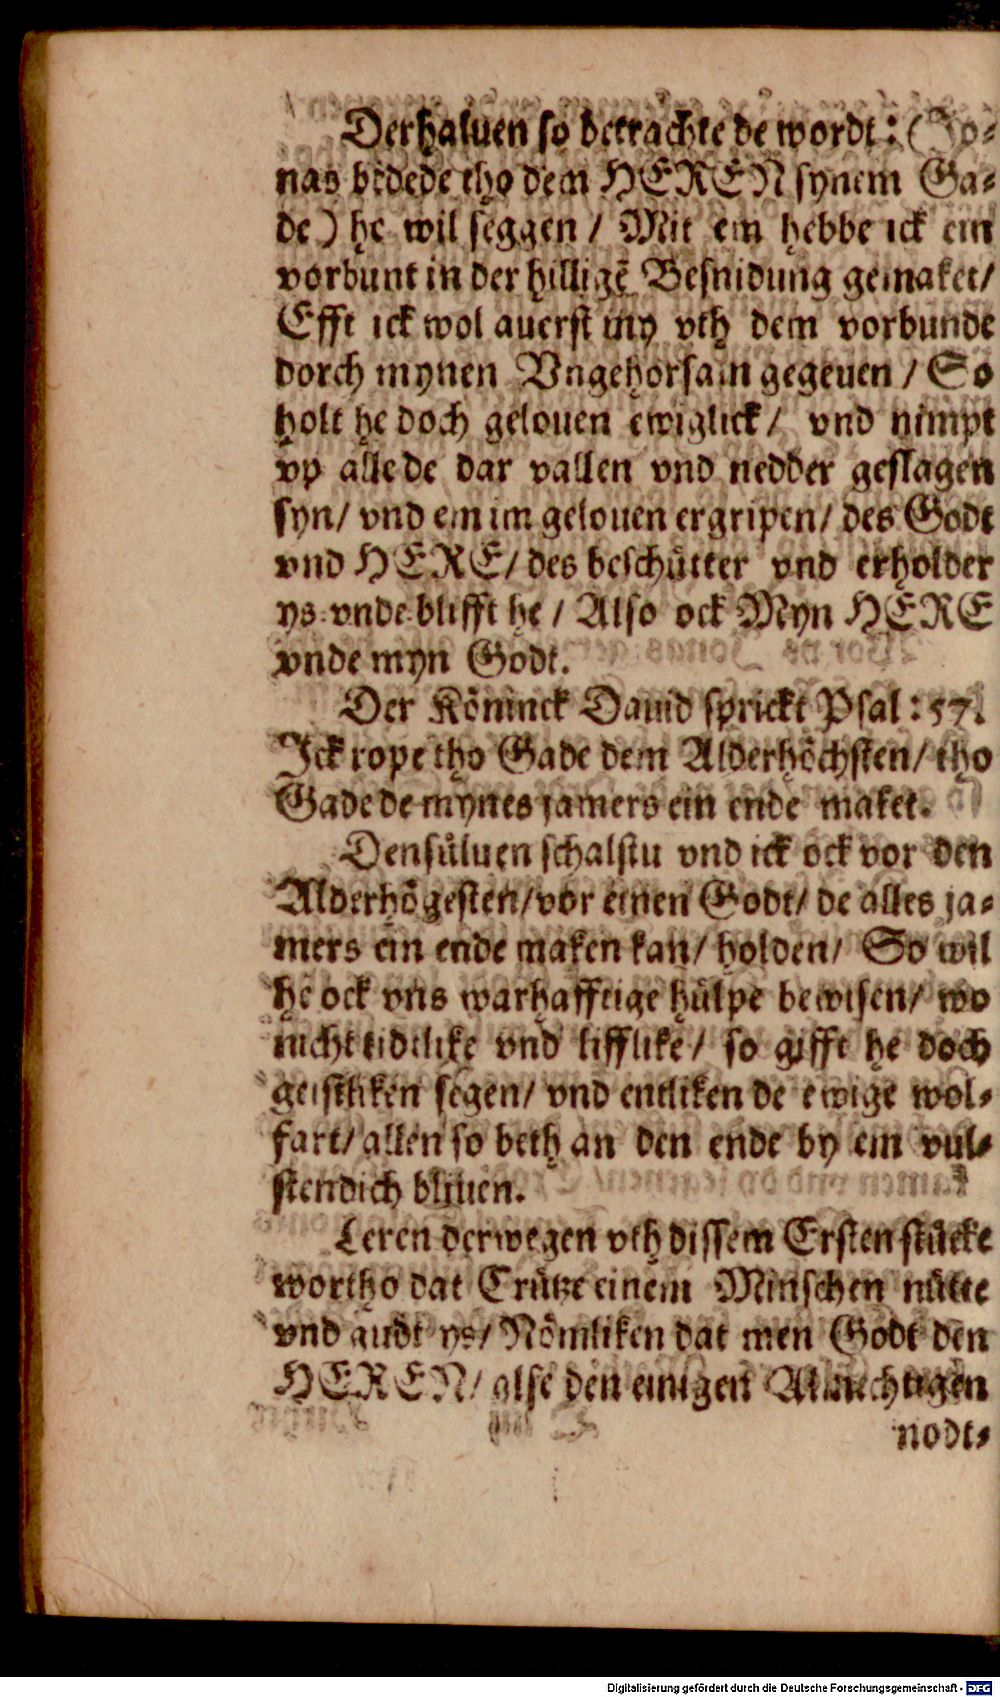 Derhaluen so betrachte de wordt: (Jo-
nas bedede tho dem HEREN synem Ga-
de) he wil seggen / Mit em hebbe ick ein
vorbunt in der hilligē Besnidung gemaket/
Efft ick wol auerst my vth dem vorbunde
dorch mynen Vngehorsam gegeuen / So
holt he doch gelouen ewiglick/ vnd nimpt
vp alle de dar vallen vnd nedder geslagen
syn/ vnd em im gelouen ergripen/ des Godt
vnd HERE/ des beschütter vnd erholder
ys vnde blifft he / Also ock Myn HERE
vnde myn Godt.
Der Köninck Dauid sprickt Psal: 57.
Jck rope tho Gade dem Alderhöchsten/ tho
Gade de mynes jamers ein ende maket.
Densüluen schalstu vnd ick ock vor den
Alderhögesten/ vor einen Godt/ de alles ja-
mers ein ende maken kan/ holden/ So wil
he ock vns warhafftige hülpe bewisen/ wo
nicht tidtlike vnd lifflike/ so gifft he doch
geistliken segen/ vnd entliken de ewige wol-
fart/ allen so beth an den ende by em vul-
stendich bliuen.
Leren derwegen vth dissem Ersten stücke
wortho dat Crütze einem Minschen nütte
vnd gudt ys/ Nömliken dat men Godt den
HEREN/ alse den einigen Almechtigen
nodt-
Digitalisierung gefördert durch die Deutsche Forschungsgemeinschaft - DFG